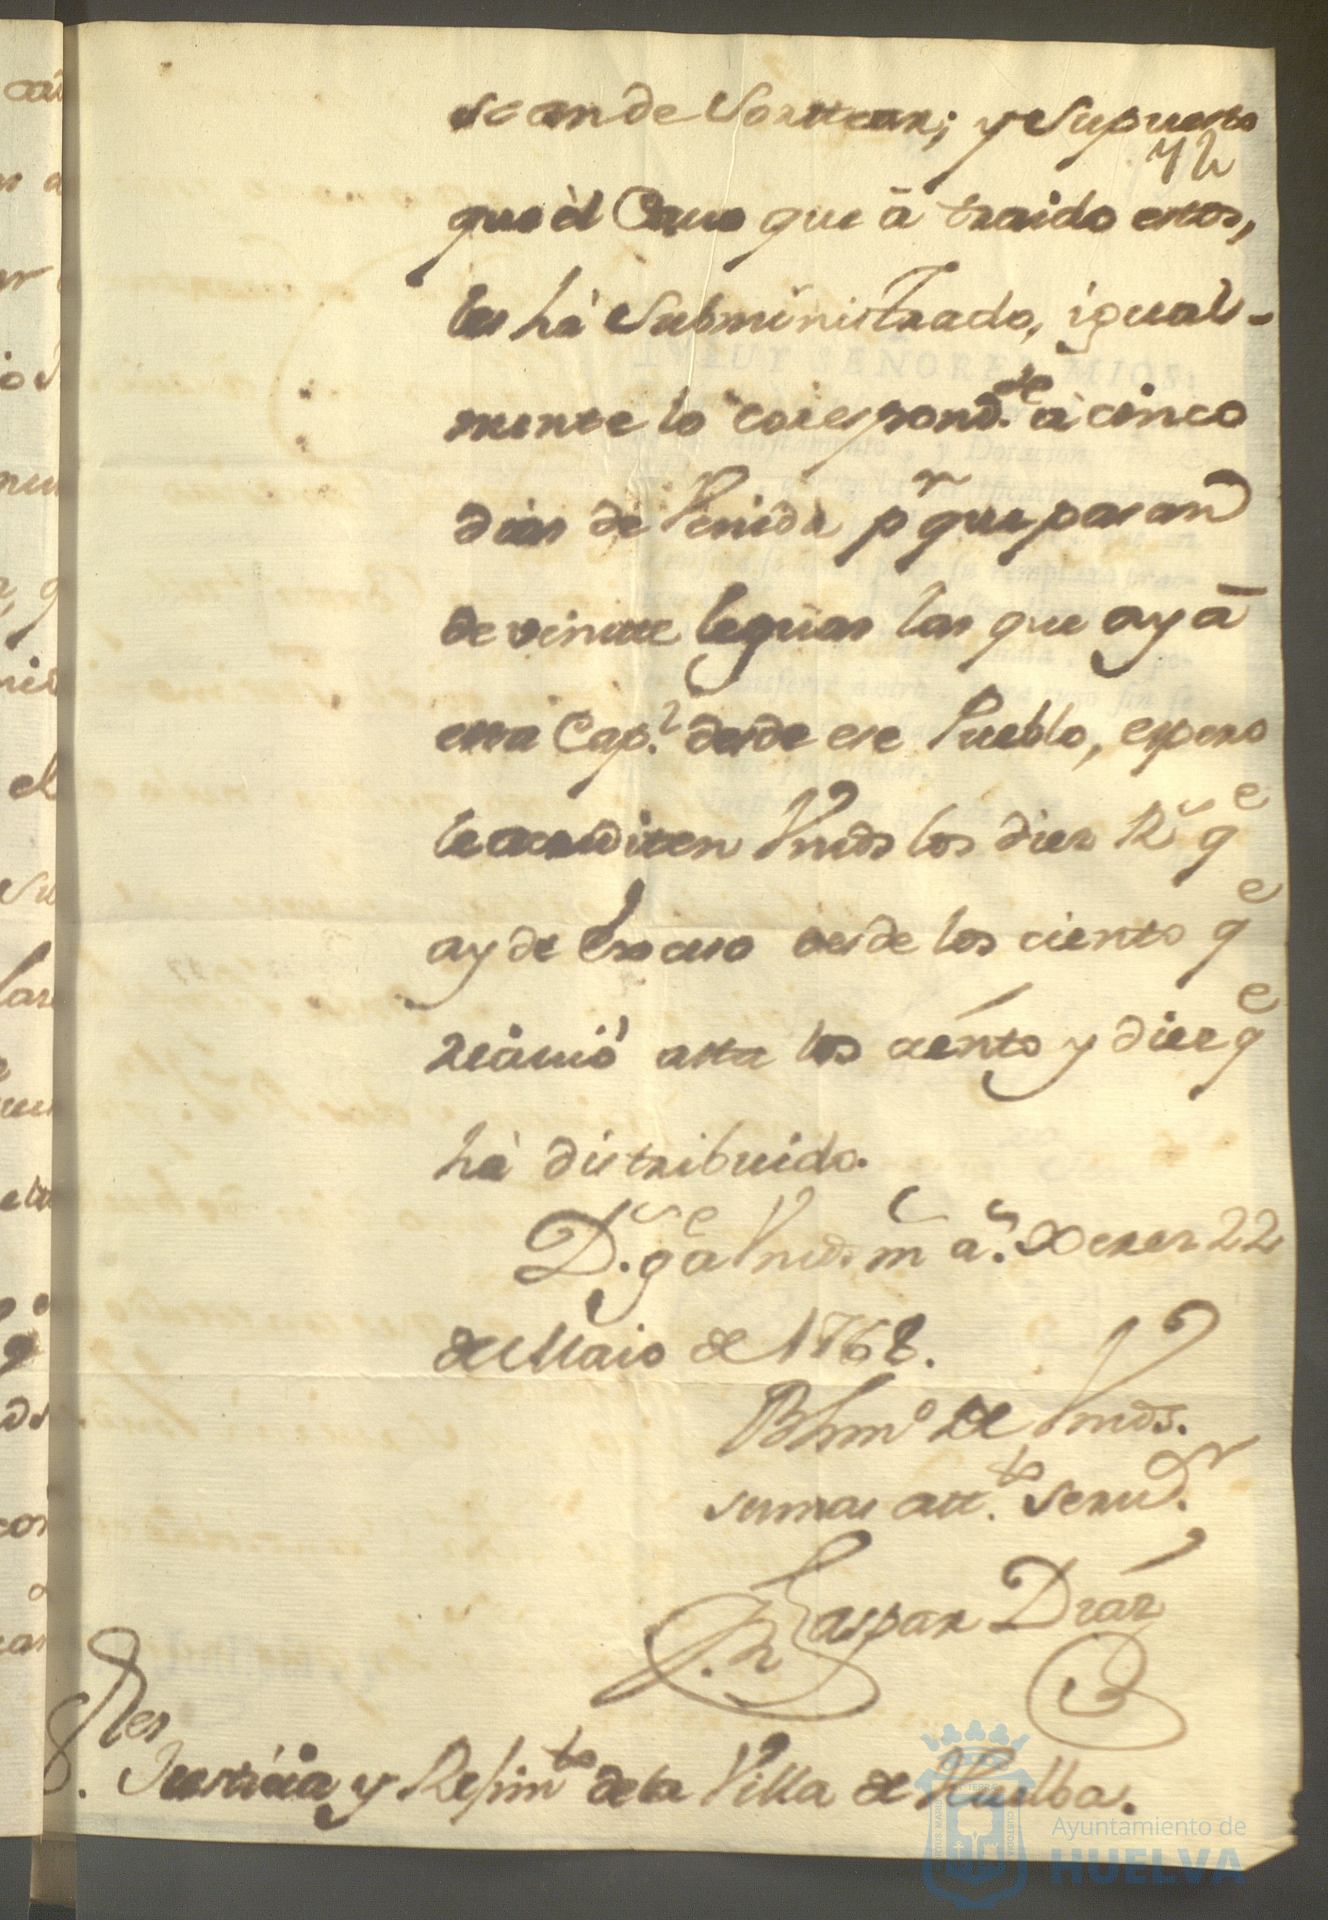 se an de Sorttear; y Supuesto
72
que èl Cavo que â traido estos,
les hà Subministrado, igual-
mente lo corespond.te à cinco
dias de Venida pr que pasan
de veintte leguas las que ay â
esta Cap.l desde ese Pueblo, espero
le acrediten Vmds los diez Rs qe
ay de Exceso desde los ciento qe
reciuió asta los ciento y diez qe
hà distribuido.
D.s ge a Vmds. ms a.s Xerez 22
de Maio de 1768.
BLmo de Vmds.
su mas att.to Seruid.r
Gaspar Diáz
S.res
Justticia y Rejim.to de la Villa de Huelba.
Ayuntamiento de
HUELVA